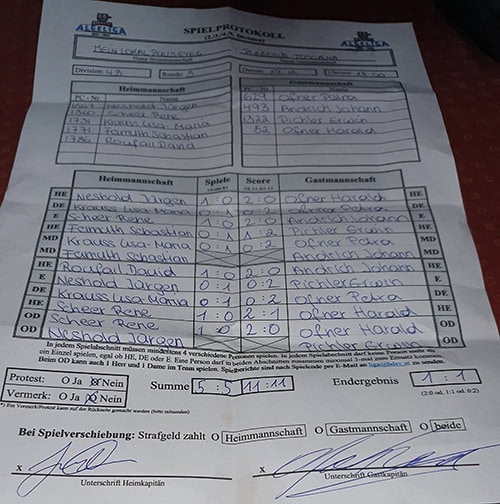 ALGELIGA
SPIELPROTOKOLL
ALGELIGA
MEIN LOKAL
Name Heimmannschaft
Name Gastmannschaft
Division: 4B Runde: 5 Datum:
Heimmannschaft Gastmannschaft
PC - Nr. Name
Neshold Jürgen 629 Ofner Petra
Scheer Rene 193 Andrich Johann
1731 Krauss Lisa-Maria 1322 Pichler Erwin
1771 Famuth Sebastian 52 Ofner Harald
1786 Roufail David
Heimmannschaft Spiele Score Gastmannschaft
HE Neshold Jürgen 1 : 0 2 : 0 Ofner Harald HE
DE Krauss Lisa-Maria 0 : 1 0 : 2 Ofner Petra DE
E Scheer Rene 1 : 0 2 : 0 Andrich Johann E
HE Femuth Sebastian 0 : 1 1 : 2 Pichler Erwin HE
MD Krauss Lisa-Maria 0 : 1 0 : 2 Ofner Petra MD
MD Femuth Sebastian Andrich Johann MD
HE Roufail David 1 : 0 2 : 0 Andrich Johann HE
E Neshold Jürgen 0 : 1 0 : 2 Pichler Erwin E
DE Krauss Lisa Maria 0 : 1 0 : 2 Ofner Petra DE
HE Scheer Rene 1 : 0 2 : 1 Ofner Harald HE
OD Scheer Rene 1 : 0 2 : 0 Ofner Harald OD
OD Neshold Jürgen Pichler Erwin OD
In jedem Spielabschnitt müssen mindestens 4 verschiedene Personen spielen. In jedem Spielabschnitt darf keine Person mehr als
ein Einzel spielen, egal ob HE, DE oder E. Eine Person darf in beiden Abschnitten zusammen maximal 3-mal zum Einsatz kommen.
Beim OD kann auch 1 Herr und 1 Dame im Team spielen. Spielberichte sind nach Spielende per E-Mail an zu senden.
Protest: O Ja O Nein Summe 5 : 5 11 : 11 Endergebnis 1 : 1
Vermerk: O Ja O Nein (2:0 od. 1:1 od. 0:2)
*) Ein Vermerk/Protest kann auf der Rückseite gemacht werden (bitte ankreuzen)
Bei Spielverschiebung: Strafgeld zahlt O Heimmannschaft O Gastmannschaft O beide
X X
Unterschrift Heimkapitän Unterschrift Gastkapitän